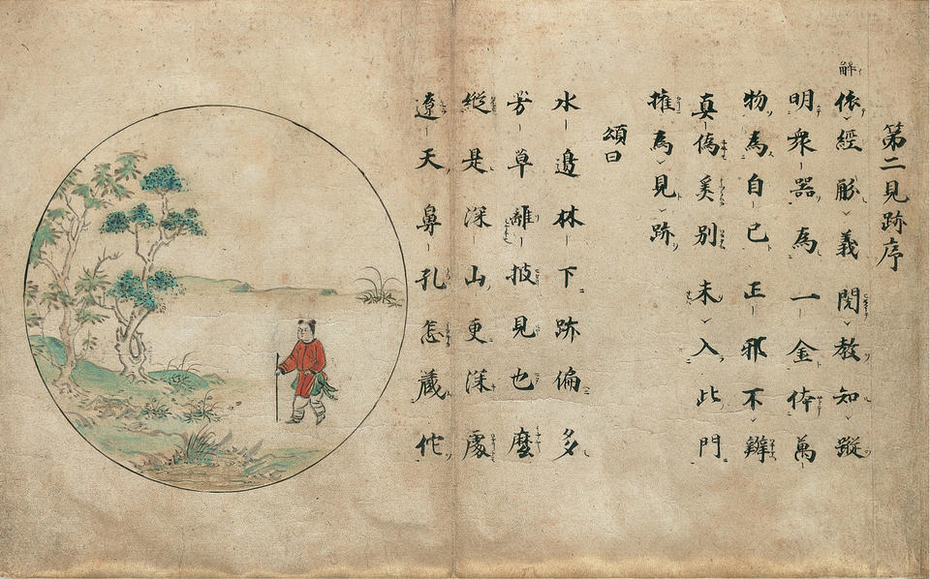 第二見跡序
解
依經觧義閲教知蹤
明衆器為一金体萬
物為自己正邪不辨
真偽奚別未入此門
權為見跡
頌曰
水邊林下跡偏多
芳草離披見也麼
縱是深山更深處
遼天鼻孔怎藏佗